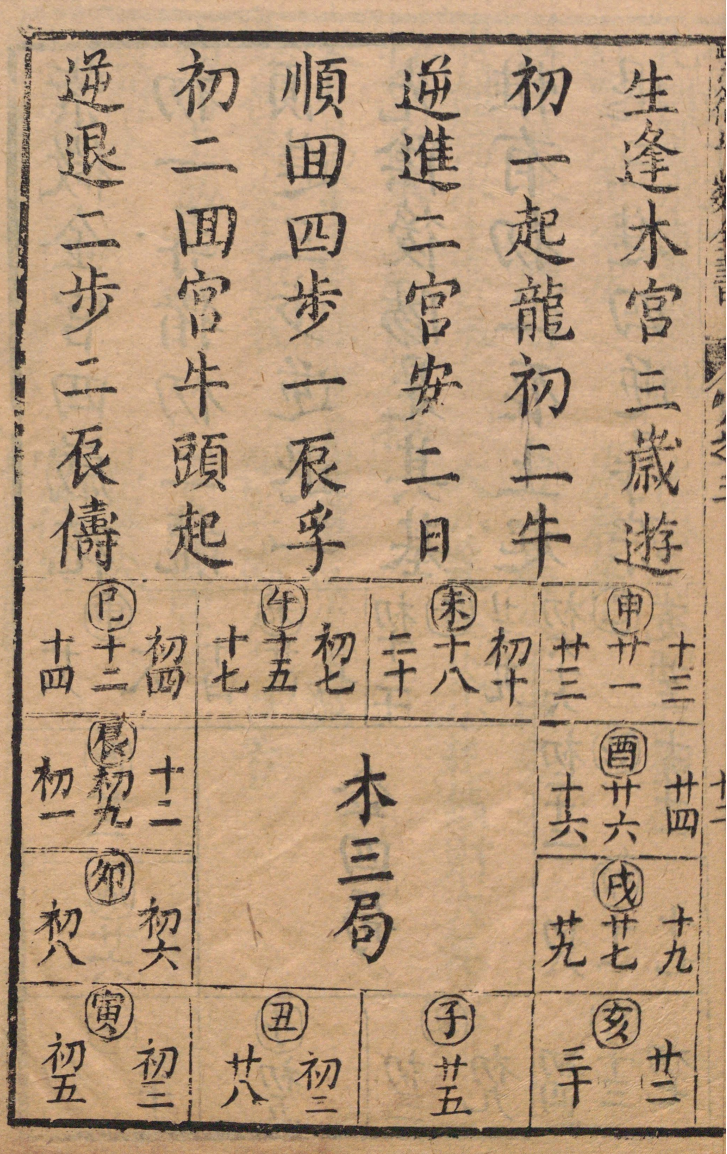 生逢木宮三歲遊
初一起龍初二牛
逆進二宮安二日
順囬四步一辰孚
初二囬宮牛頭起
逆退二步二辰儔
申
十三
廿一
廿三
未
初十
十八
二十
午
初七
十五
十七
巳
初四
十二
十四
酉
廿四
廿六
十六
木三局
辰
十二
初九
初一
戌
十九
廿七
廿九
卯
初六
初八
亥
廿二
三十
子
廿五
丑
初二
廿八
寅
初三
初五